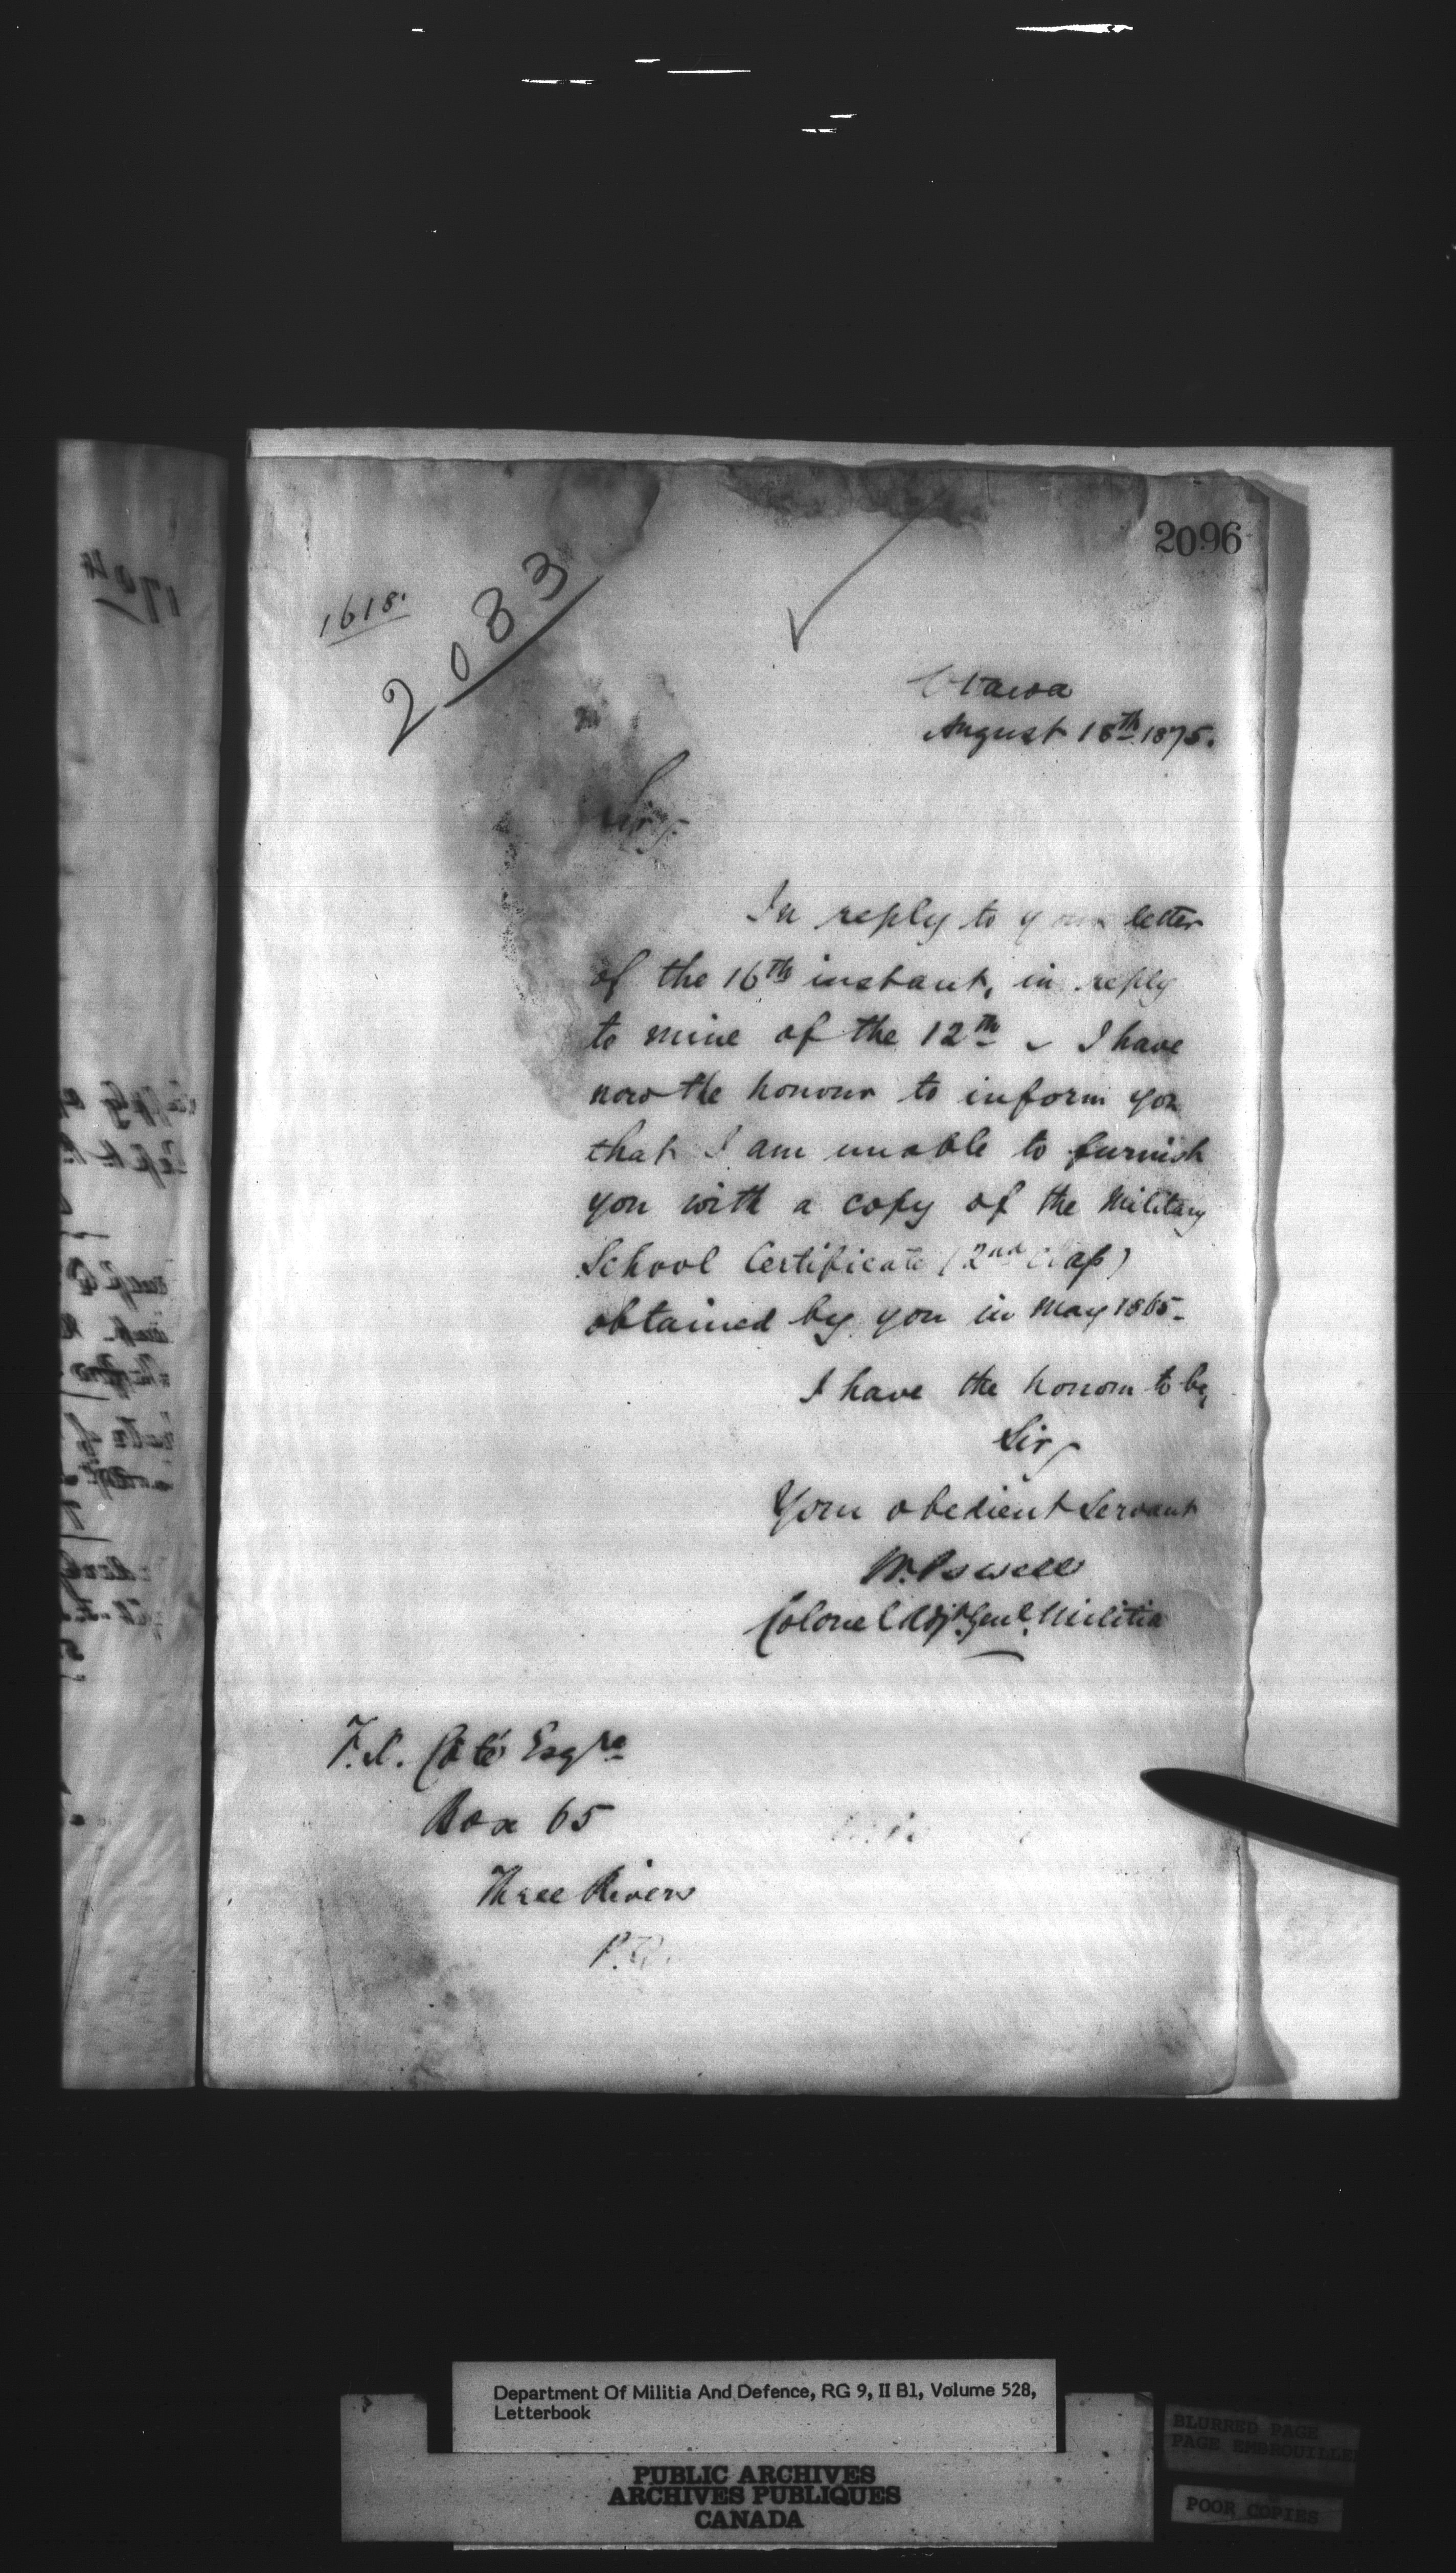 2096
1618.
2083
Ottawa
August 18th 1875.
Sir,
In reply to your letter
of the 16th instant, in reply
to mine of the 12th I have
now the honour to inform you
that I am unable to furnish
you with a copy of the Military
School Certificate (2nd Class)
obtained by you in May 1865.
I have the honour to be,
Sir,
Your obedient Servant
W. Powell
Colonel Adjt. Genl. Militia
F.X. Coté Esqre
Box 65
Three Rivers
P.Q.
Department Of Militia And Defence, RG 9, II B1, Volume 528,
Letterbook
PUBLIC ARCHIVES
ARCHIVES PUBLIQUES
CANADA
BLURRED PAGE
PAGE EMBROUILLEE
POOR COPIES